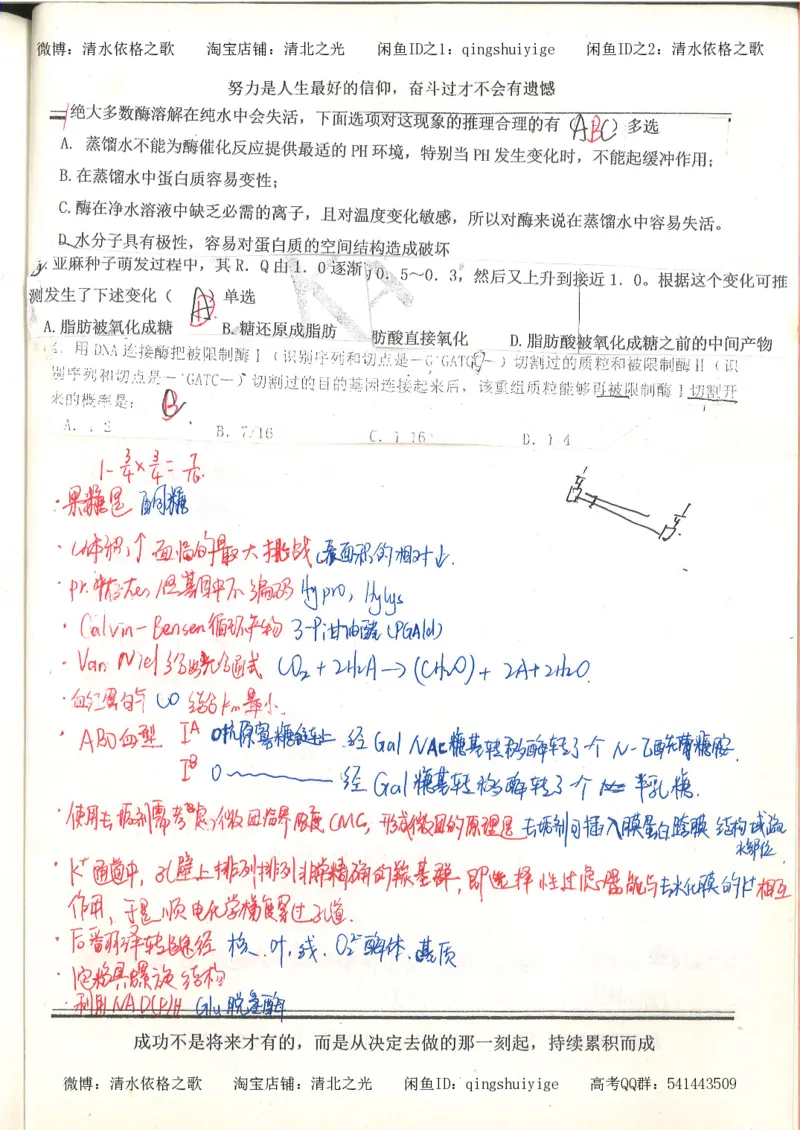 微博：清水依格之歌 淘宝店铺：清北之光 闲鱼ID之1：qingshuiyige 闲鱼ID之2：清水依格之歌
努力是人生最好的信仰，奋斗过才不会有遗憾
绝大多数酶溶解在纯水中会失活，下面选项对这现象的推理合理的有（ABC）多选
A. 蒸馏水不能为酶催化反应提供最适的 PH 环境，特别当 PH 发生变化时，不能起缓冲作用；
B.在蒸馏水中蛋白质容易变性；
C.酶在净水溶液中缺乏必需的离子，且对温度变化敏感，所以对酶来说在蒸馏水中容易失活。
D.水分子具有极性，容易对蛋白质的空间结构造成破坏
亚麻种子萌发过程中，其 R．Q 由 1．0 逐渐 0．5～0．3，然后又上升到接近 1．0。根据这个变化可推
测发生了下述变化（ ）单选
A.脂肪被氧化成糖 B.糖还原成脂肪 肪酸直接氧化 D.脂肪酸被氧化成糖之前的中间产物
用 DNA 连接酶把被限制酶 I（识别序列和切点是－G GATC －）切割过的质粒和被限制酶 II（识
别序列和切点是－ˇGATC－）切割过的目的基因连接起来后，该重组质粒能够再被限制酶 I 切割开
来的概率是： B
A. B. 7/16 C. 1 16 D. 1 4
1-3/4×3/4=7/16.
·果糖是 酮糖
·体积↑面临的最大挑战 表面积的相对↓.
基因中不编码 Hypro, Hylys
·Calvin-Bensen循环产物 3-Pi甘油醛 (PGAld)
·Van Niel 通式 CO₂+2H₂A→(CH₂O)+2A+H₂O.
·血红蛋白与 CO 结合 km最小.
·ABO血型 Iᴬ O抗原寡糖链上 经 GalNAc糖基转移酶转了个 N-乙酰半乳糖胺.
Iᴮ O～—— 经 Gal糖基转移酶转了个 半乳糖.
·使用去垢剂需考虑微团临界浓度 CMC, 形成微团的原理是 去垢剂可插入膜蛋白跨膜 结构域疏
水部位.
·K⁺通道中, 孔壁上排列排列非常精确的羰基群, 即选择性过滤器能与去水化膜的K⁺相互
作用, 于是顺电化学梯度穿过孔道.
·后翻译转运途径 核.叶.线.O₂²⁻酶体.基质
螺旋结构
·利用NAD(P)H Glu脱氢酶
成功不是将来才有的，而是从决定去做的那一刻起，持续累积而成
微博：清水依格之歌 淘宝店铺：清北之光 闲鱼ID：qingshuiyige 高考QQ群：541443509